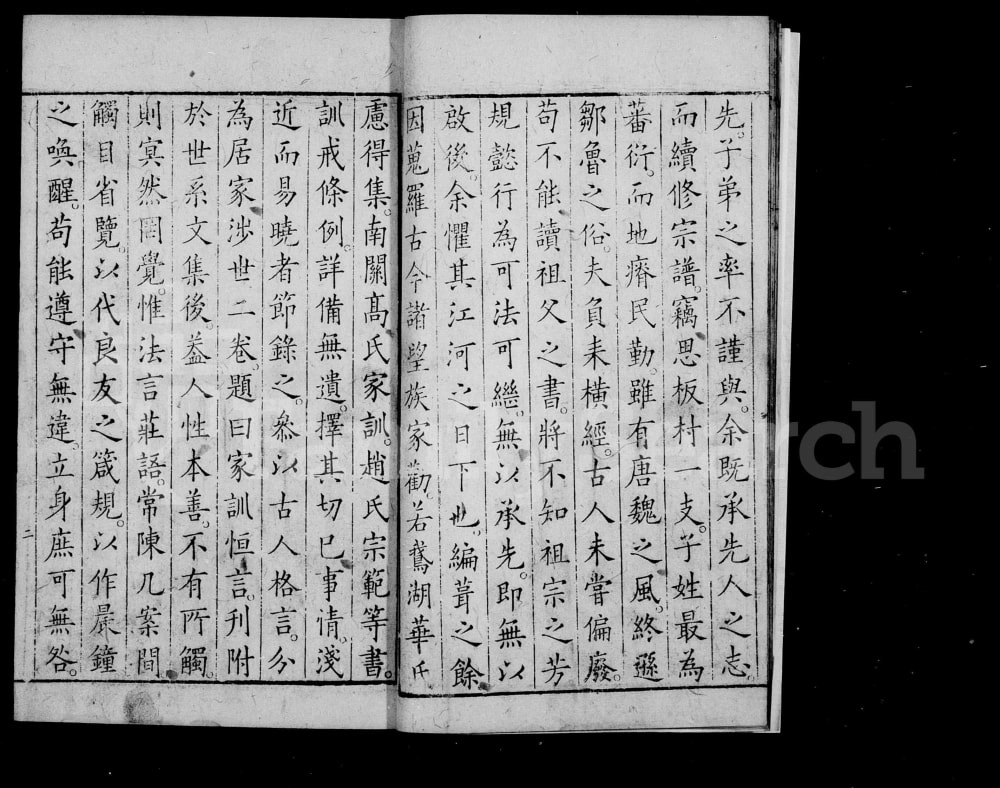 先。子弟之率不謹與。余既承先人之志。
而續修宗譜。竊思板村一支。子姓最為
蕃衍。而地瘠民勤。雖有唐魏之風。終遜
鄒魯之俗。夫負耒橫經。古人未嘗偏廢。
苟不能讀祖父之書。將不知祖宗之芳
規懿行為可法可繼。無以承先。即無以
啟後。余懼其江河之日下也。編葺之餘
因蒐羅古今諸望族家勸。若鵞湖華氏
慮得集。南關高氏家訓。趙氏宗範等書。
訓戒條例。詳備無遺。擇其切己事情。淺
近而易曉者節錄之。叅以古人格言。分
為居家涉世二卷。題曰家訓恒言。刊附
於世系文集後。葢人性本善。不有所觸。
則㝠然罔覺。惟法言莊語。常陳几案間。
觸目省覽。以代良友之箴規。以作晨鐘
之喚醒。苟能遵守無違。立身庶可無咎。
二